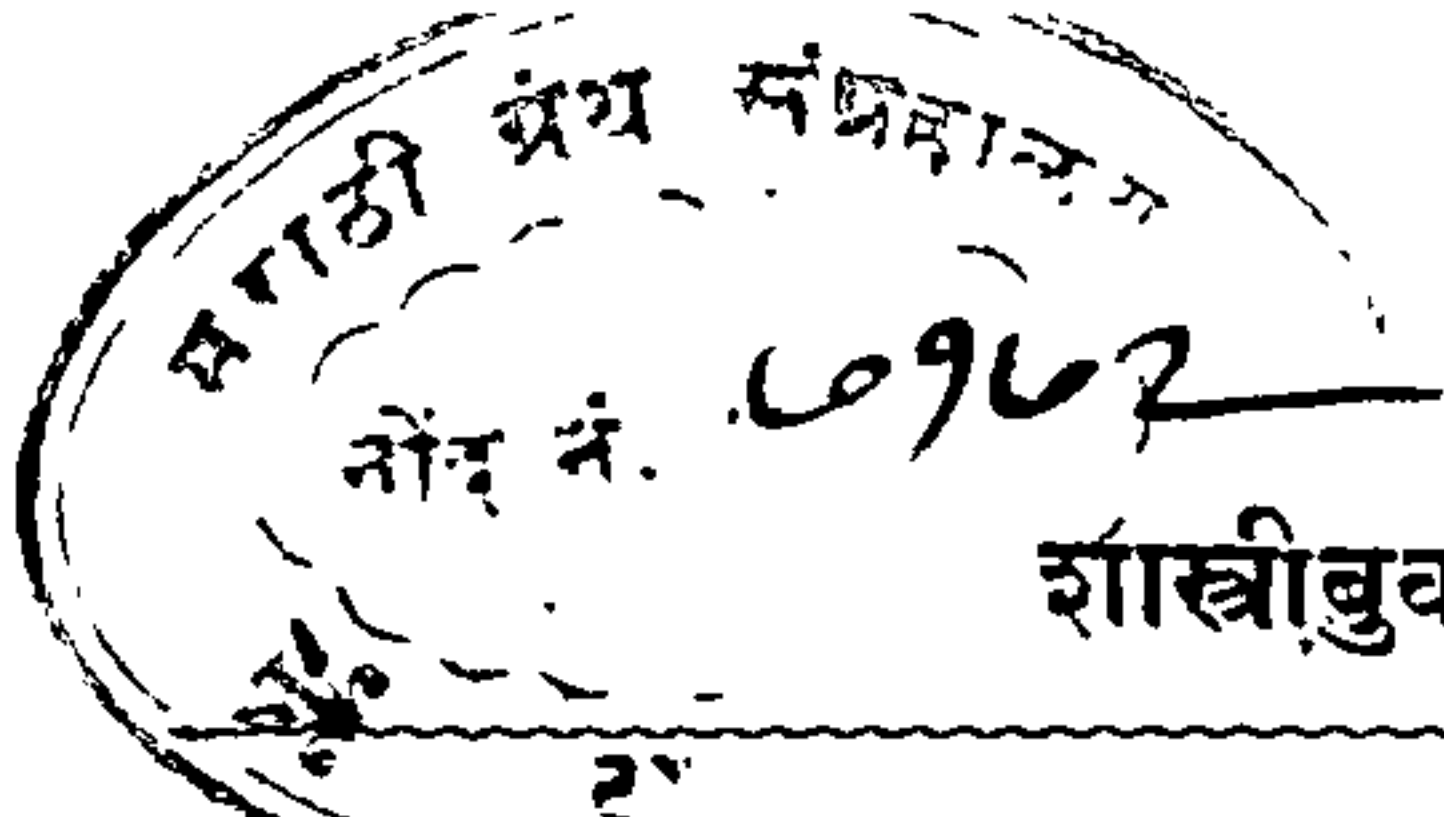 मराठी ग्रंथ संग्रहालय
नोंद नं. ७१७२
शास्त्रीबुव